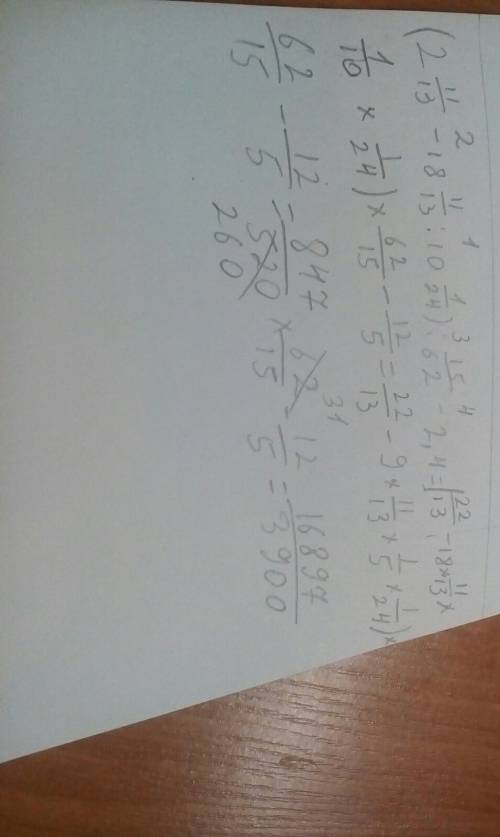 (2 11/13 - 18 11/13 : 10 1/24) : 15/62 - 2,4 = (22/13 - 18 * 11/13 ×
1/10 × 1/24) × 62/15 - 12/5 = 22/13 - 9 * 11/13 × 1/5 × 1/24) ×
62/15 - 12/5 = 847/520 × 62/15 - 12/5 = 16897/3900
260 31
2 1 3 4